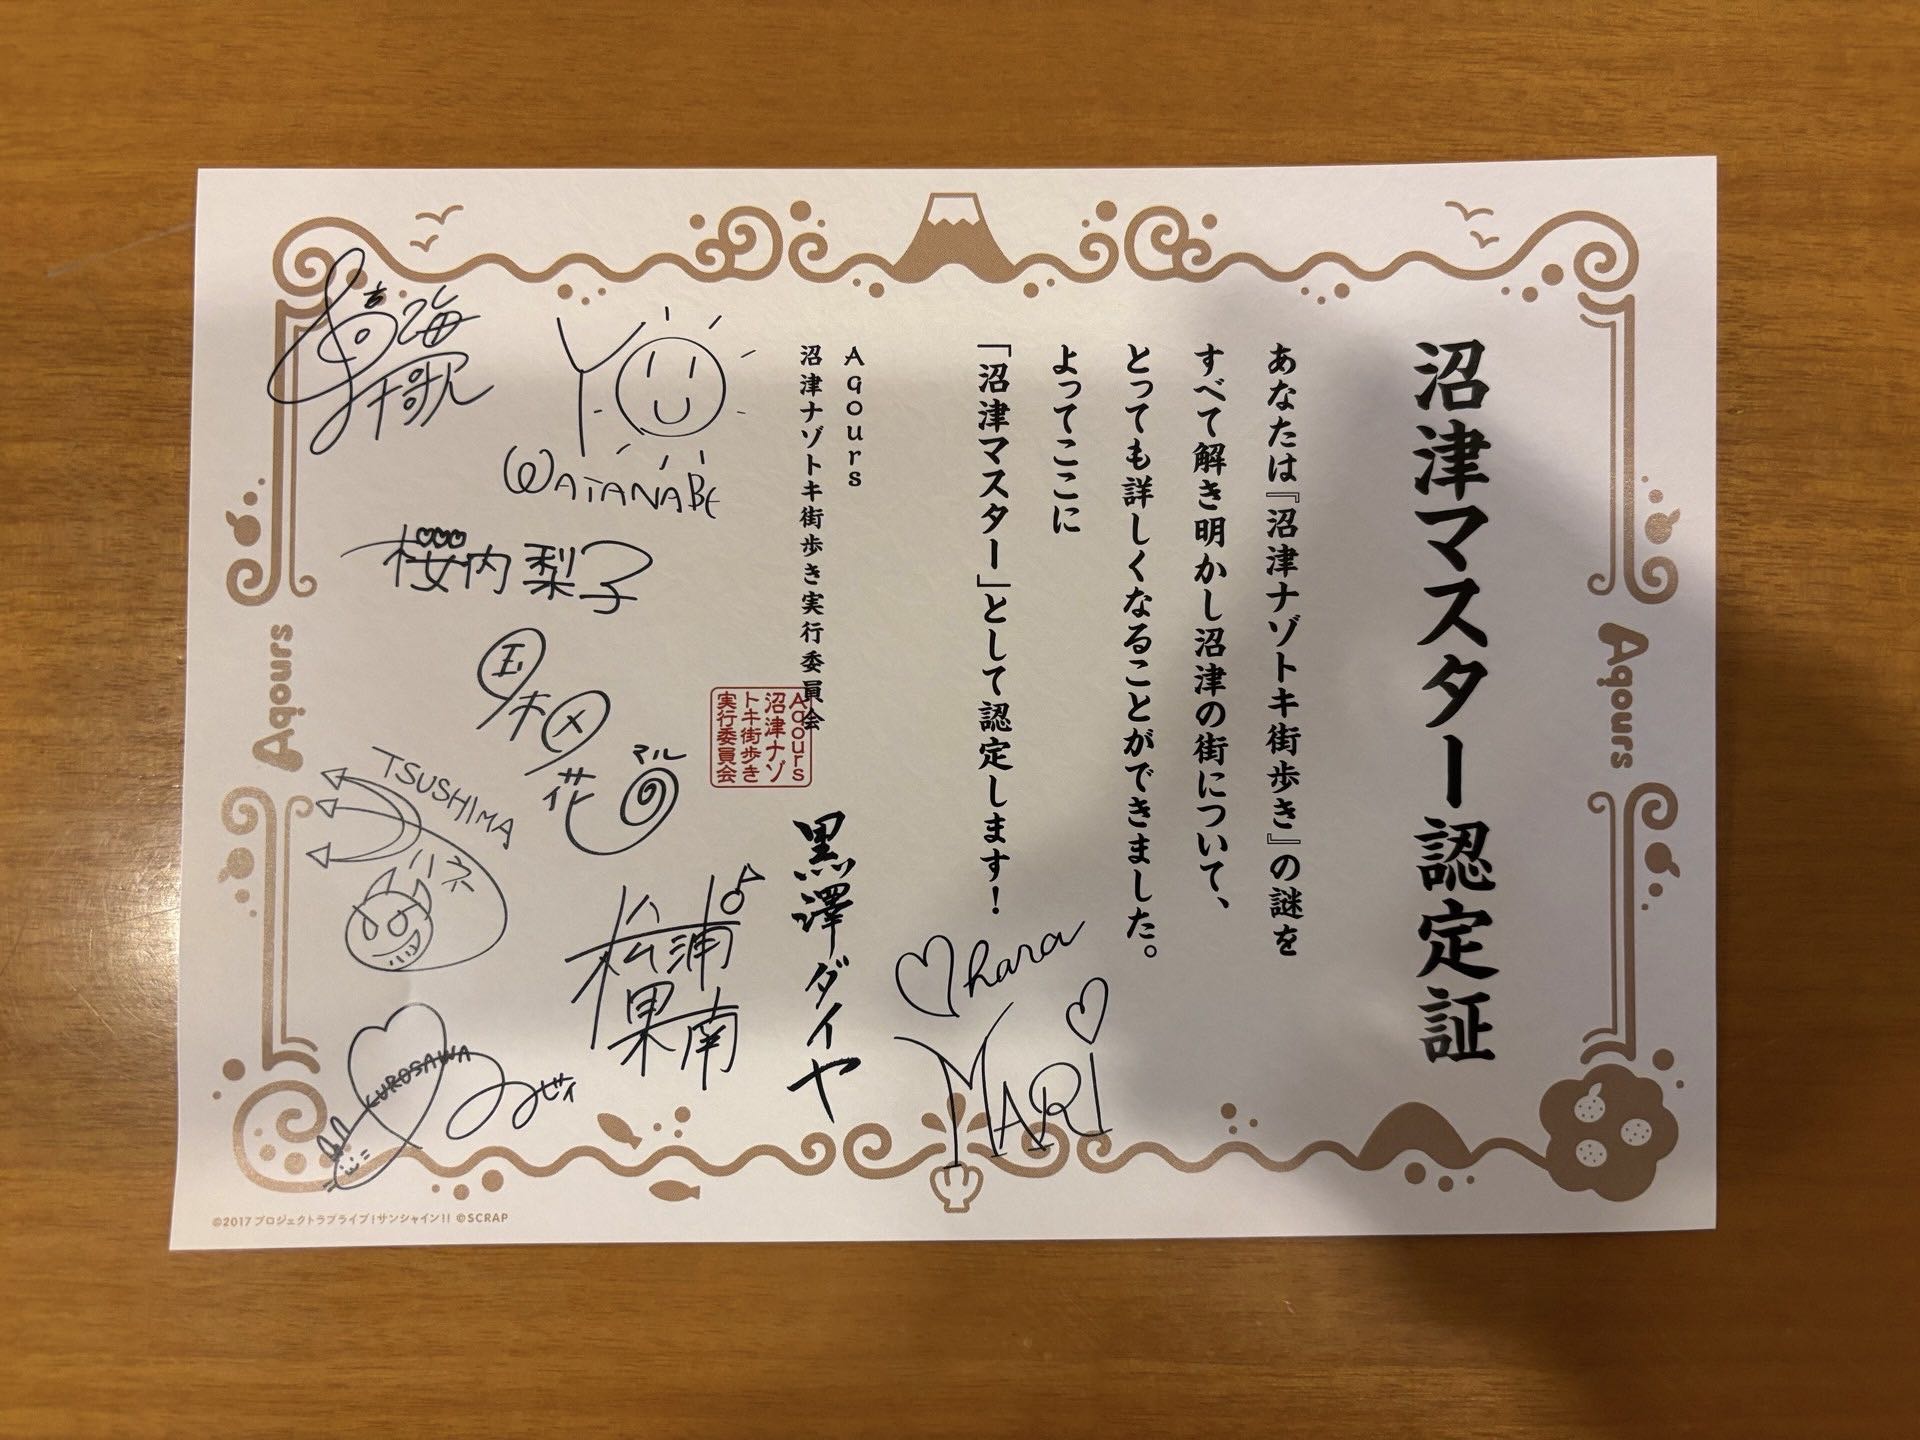 沼津マスター認定証
あなたは『沼津ナゾトキ街歩き』の謎を
すべて解き明かし沼津の街について、
とっても詳しくなることができました。
よってここに
「沼津マスター」として認定します！
Aqours
沼津ナゾトキ街歩き実行委員会
Aqours
沼津ナゾ
トキ街歩き
実行委員会
高海
千歌
YOU
WATANABE
桜内梨子
国木田
花マル
TSUSHIMA
ハネ
KUROSAWA
ルビィ
松浦
果南
黒澤ダイヤ
Ohara
MARI
Aqours
Aqours
©2017 プロジェクトラブライブ！サンシャイン!! ©SCRAP